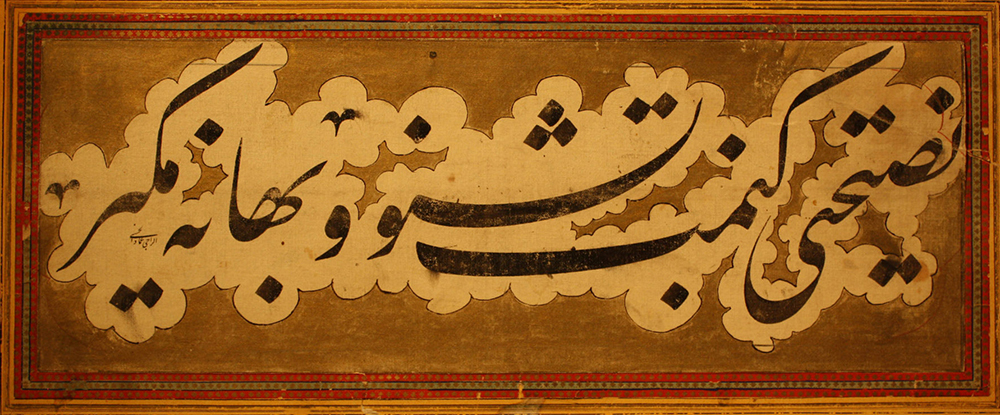 نصیحتی کنمت بشنو و بهانه مگیر